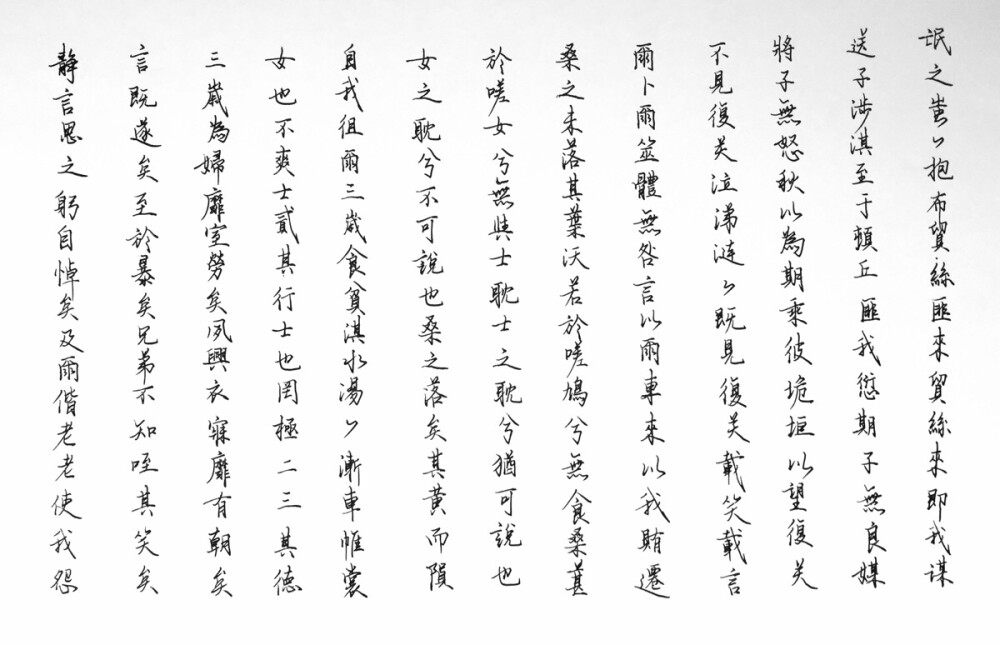 氓之蚩〻抱布貿絲匪來貿絲來即我謀
送子涉淇至于頓丘匪我愆期子無良媒
將子無怒秋以為期乘彼垝垣以望復关
不見復关泣涕漣〻既見復关載笑載言
爾卜爾筮體無咎言以爾車來以我賄遷
桑之未落其葉沃若於嗟鳩兮無食桑葚
於嗟女兮無與士耽士之耽兮猶可說也
女之耽兮不可說也桑之落矣其黃而隕
自我徂爾三歲食貧淇水湯〻漸車帷裳
女也不爽士貳其行士也罔極二三其德
三歲為婦靡室勞矣夙興夜寐靡有朝矣
言既遂矣至於暴矣兄弟不知咥其笑矣
静言思之躬自悼矣及爾偕老老使我怨